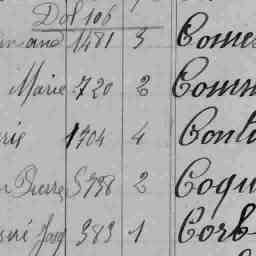 Dol 106
1481 3 Comes
Marie 720 2 Comm
rie 1704 4 Conti
Pierre 5798 2 Coqu
383 1 Corb